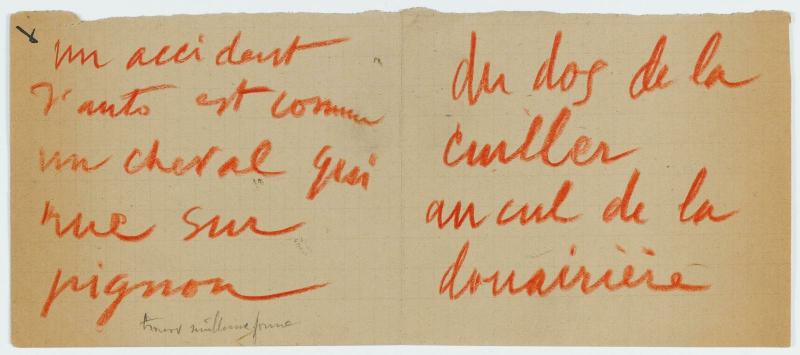 un accident
d'auto est comme
un cheval qui
rue sur
pignon
du dos de la
cuiller
au cul de la
douairière